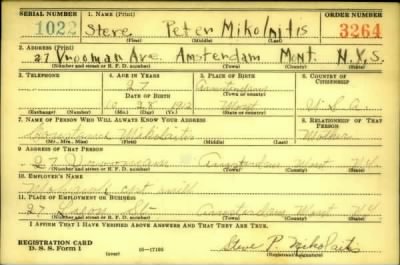 SERIAL NUMBER 1. NAME (Print) ORDER NUMBER
1022 Steve Peter Mikolaitis 3264
(First) (Middle) (Last)
2. ADDRESS (Print)
27 Vrooman Ave. Amsterdam Mont. N.Y.S.
(Number and street or R. F. D. number) (Town) (County) (State)
3. TELEPHONE 4. AGE IN YEARS 5. PLACE OF BIRTH 6. COUNTRY OF CITIZENSHIP
27 Amsterdam
DATE OF BIRTH (Town or county)
10 28 1912 U.S.A.
(Exchange) (Number) (Mo.) (Day) (Yr.) (State or country)
7. NAME OF PERSON WHO WILL ALWAYS KNOW YOUR ADDRESS 8. RELATIONSHIP OF THAT PERSON
Mikolaitis Mother
(Mr., Mrs., Miss) (First) (Middle) (Last)
9. ADDRESS OF THAT PERSON
27 Vrooman Amsterdam Mont N.Y.
(Number and street or R. F. D. number) (Town) (County) (State)
10. EMPLOYER'S NAME
mill
11. PLACE OF EMPLOYMENT OR BUSINESS
27 St Amsterdam Mont NY
(Number and street or R. F. D. number) (Town) (County) (State)
I AFFIRM THAT I HAVE VERIFIED ABOVE ANSWERS AND THAT THEY ARE TRUE.
REGISTRATION CARD
D. S. S. Form 1 (over) 16-17105 Steve P. Mikolaitis
(Registrant's signature)